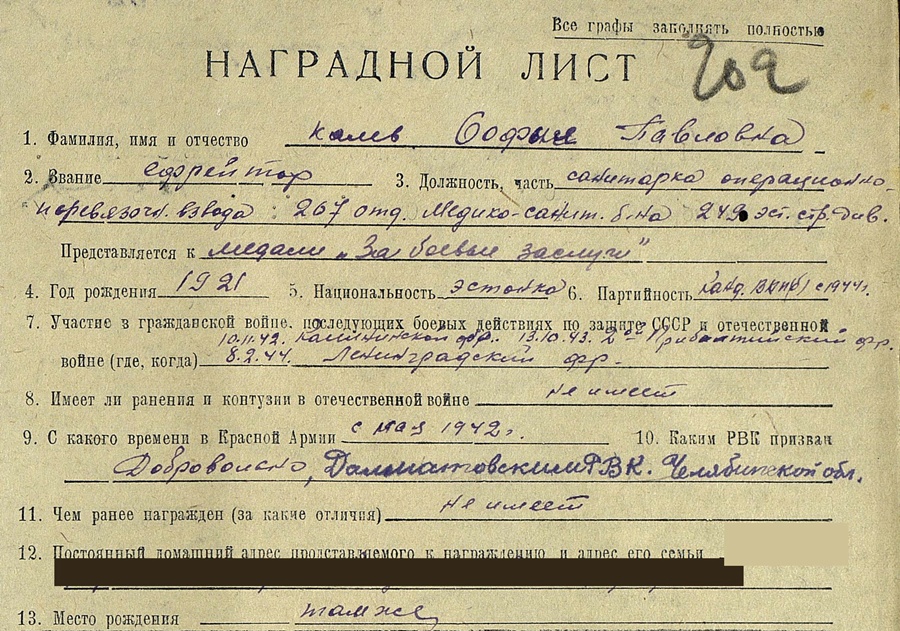 Все графы заполнять полностью
НАГРАДНОЙ ЛИСТ
1. Фамилия, имя и отчество Калев Софья Павловна
2. Звание ефрейтор 3. Должность, часть санитарка операционно-
перевязочн. взвода 267 отд. Медико-санит. б-на 249 эст. стр. див.
Представляется к медали „За боевые заслуги"
4. Год рождения 1921 5. Национальность эстонка 6. Партийность канд. ВКП(б) с 1944г.
7. Участие в гражданской войне, последующих боевых действиях по защите СССР и отечественной
10.11.42. Калининский фр. 13.10.43. 2ой Прибалтийский фр.
войне (где, когда) 8.2.44. Ленинградский фр.
8. Имеет ли ранения и контузии в отечественной войне не имеет
9. С какого времени в Красной Армии с мая 1942г. 10. Каким РВК призван
Добровольно, Далматовским РВК. Челябинской обл.
11. Чем ранее награжден (за какие отличия) не имеет
12. Постоянный домашний адрес представляемого к награждению и адрес его семьи
13. Место рождения там же